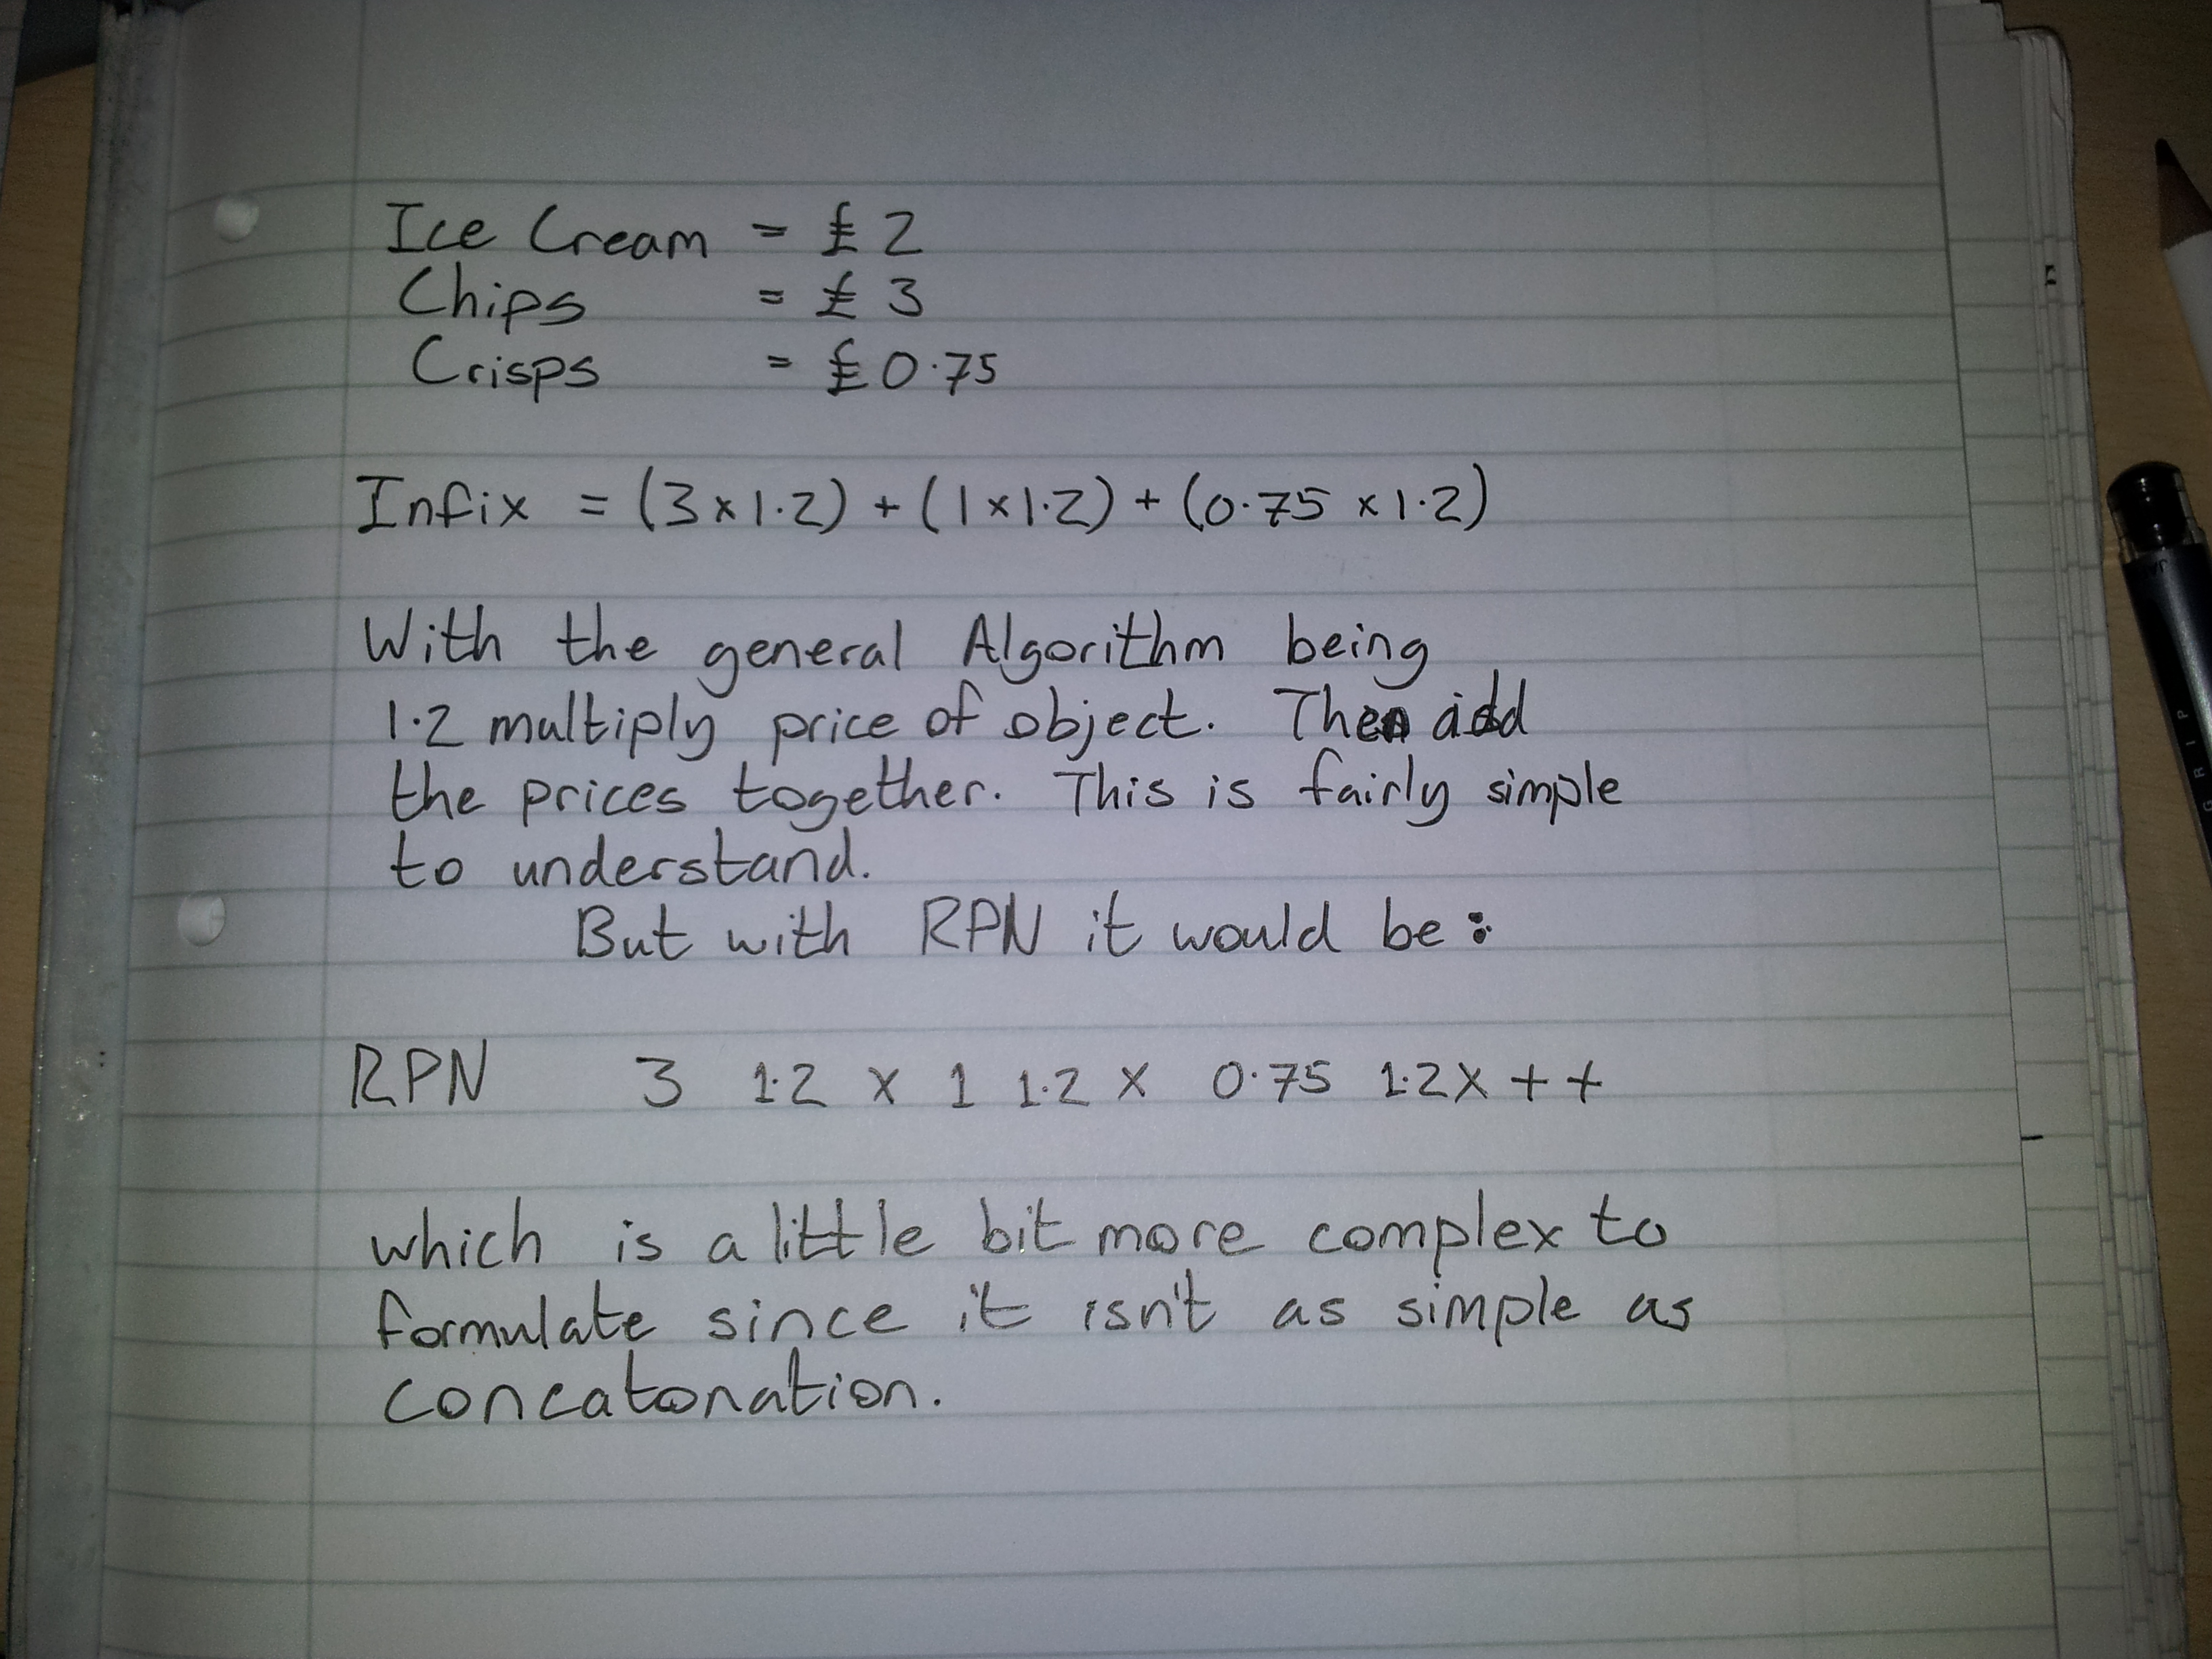 Ice Cream = £2
Chips = £3
Crisps = £0.75
Infix = (3x1.2) + (1x1.2) + (0.75 x1.2)
With the general Algorithm being
1.2 multiply price of object. Then add
the prices together. This is fairly simple
to understand.
But with RPN it would be:
RPN 3 1.2 x 1 1.2 x 0.75 1.2x + +
which is a little bit more complex to
formulate since it isn't as simple as
concatonation.
GRIP